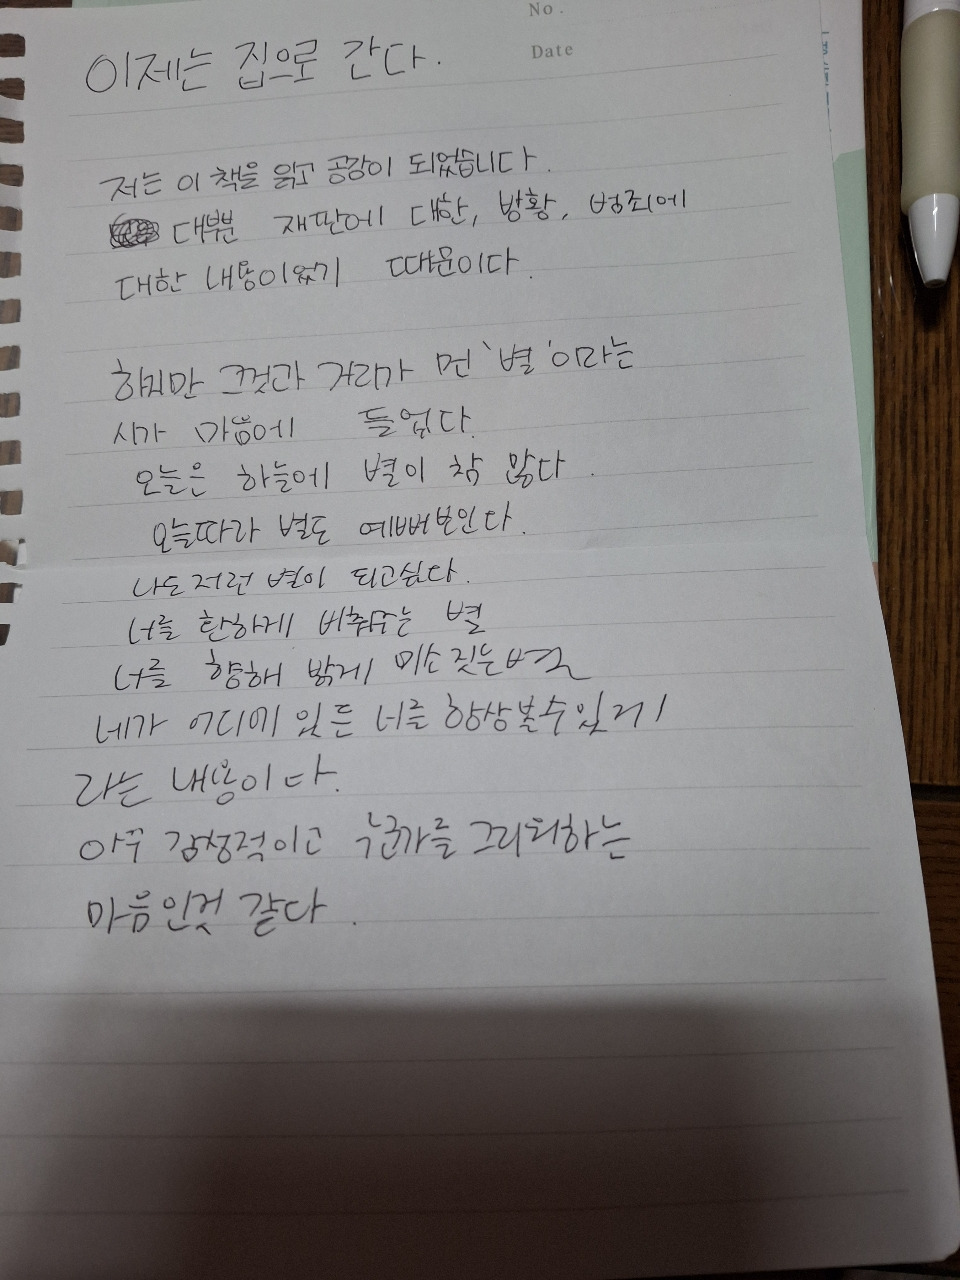 No.
Date
이제는 집으로 간다.
저는 이 책을 읽고 공감이 되었습니다.
대부분 재판에 대한, 방황, 범죄에
대한 내용이었기 때문이다.
하지만 그것과 거리가 먼 '별'이라는
시가 마음에 들었다.
오늘은 하늘에 별이 참 많다.
오늘따라 별도 예뻐보인다.
나도 저런 별이 되고싶다.
너를 환하게 비춰주는 별
너를 향해 밝게 미소짓는 별
네가 어디에 있든 너를 항상 볼 수 있게
라는 내용이다.
아주 감성적이고 누군가를 그리워하는
마음인것 같다.